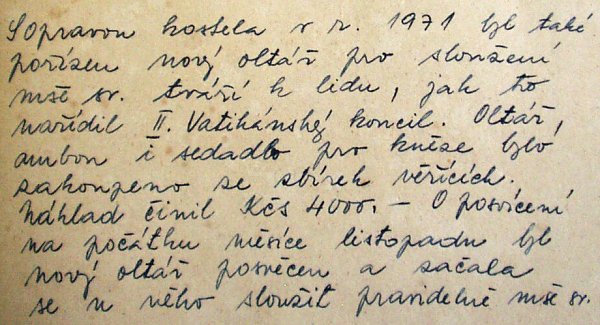 S opravou kostela v r. 1971 byl také
pořízen nový oltář pro sloužení
mše sv. tváří k lidu, jak to
nařídil II. Vatikánský koncil. Oltář,
ambon i sedadlo pro kněze bylo
zakoupeno ze sbírek věřících.
Náklad činil Kčs 4000.- O posvícení
na počátku měsíce listopadu byl
nový oltář posvěcen a začala
se u něho sloužit pravidelně mše sv.